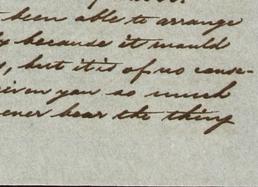 been able to arrange
because it would
, but it is of no conse-
given you so much
ever hear the thing